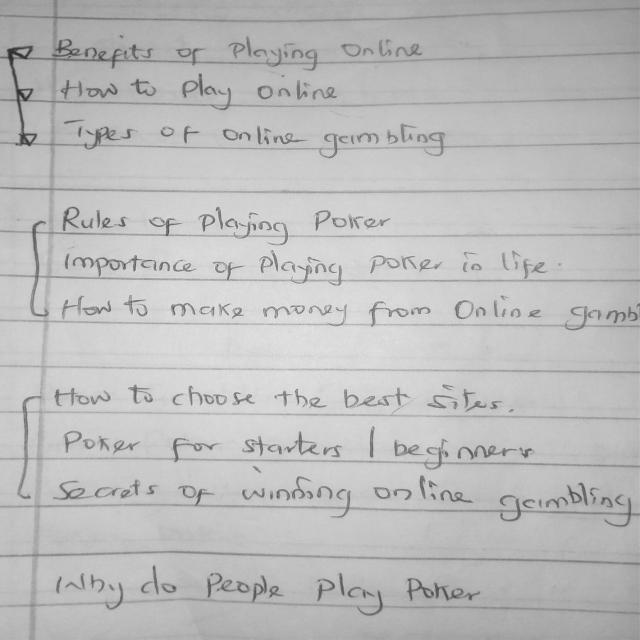 Benefits of Playing Online
How to Play Online
Types of online gambling
Rules of Playing Poker
Importance of Playing Poker in life.
How to make money from Online gamb
How to choose the best sites.
Poker for starters | beginners
Secrets of winning online gambling
Why do People Play Poker